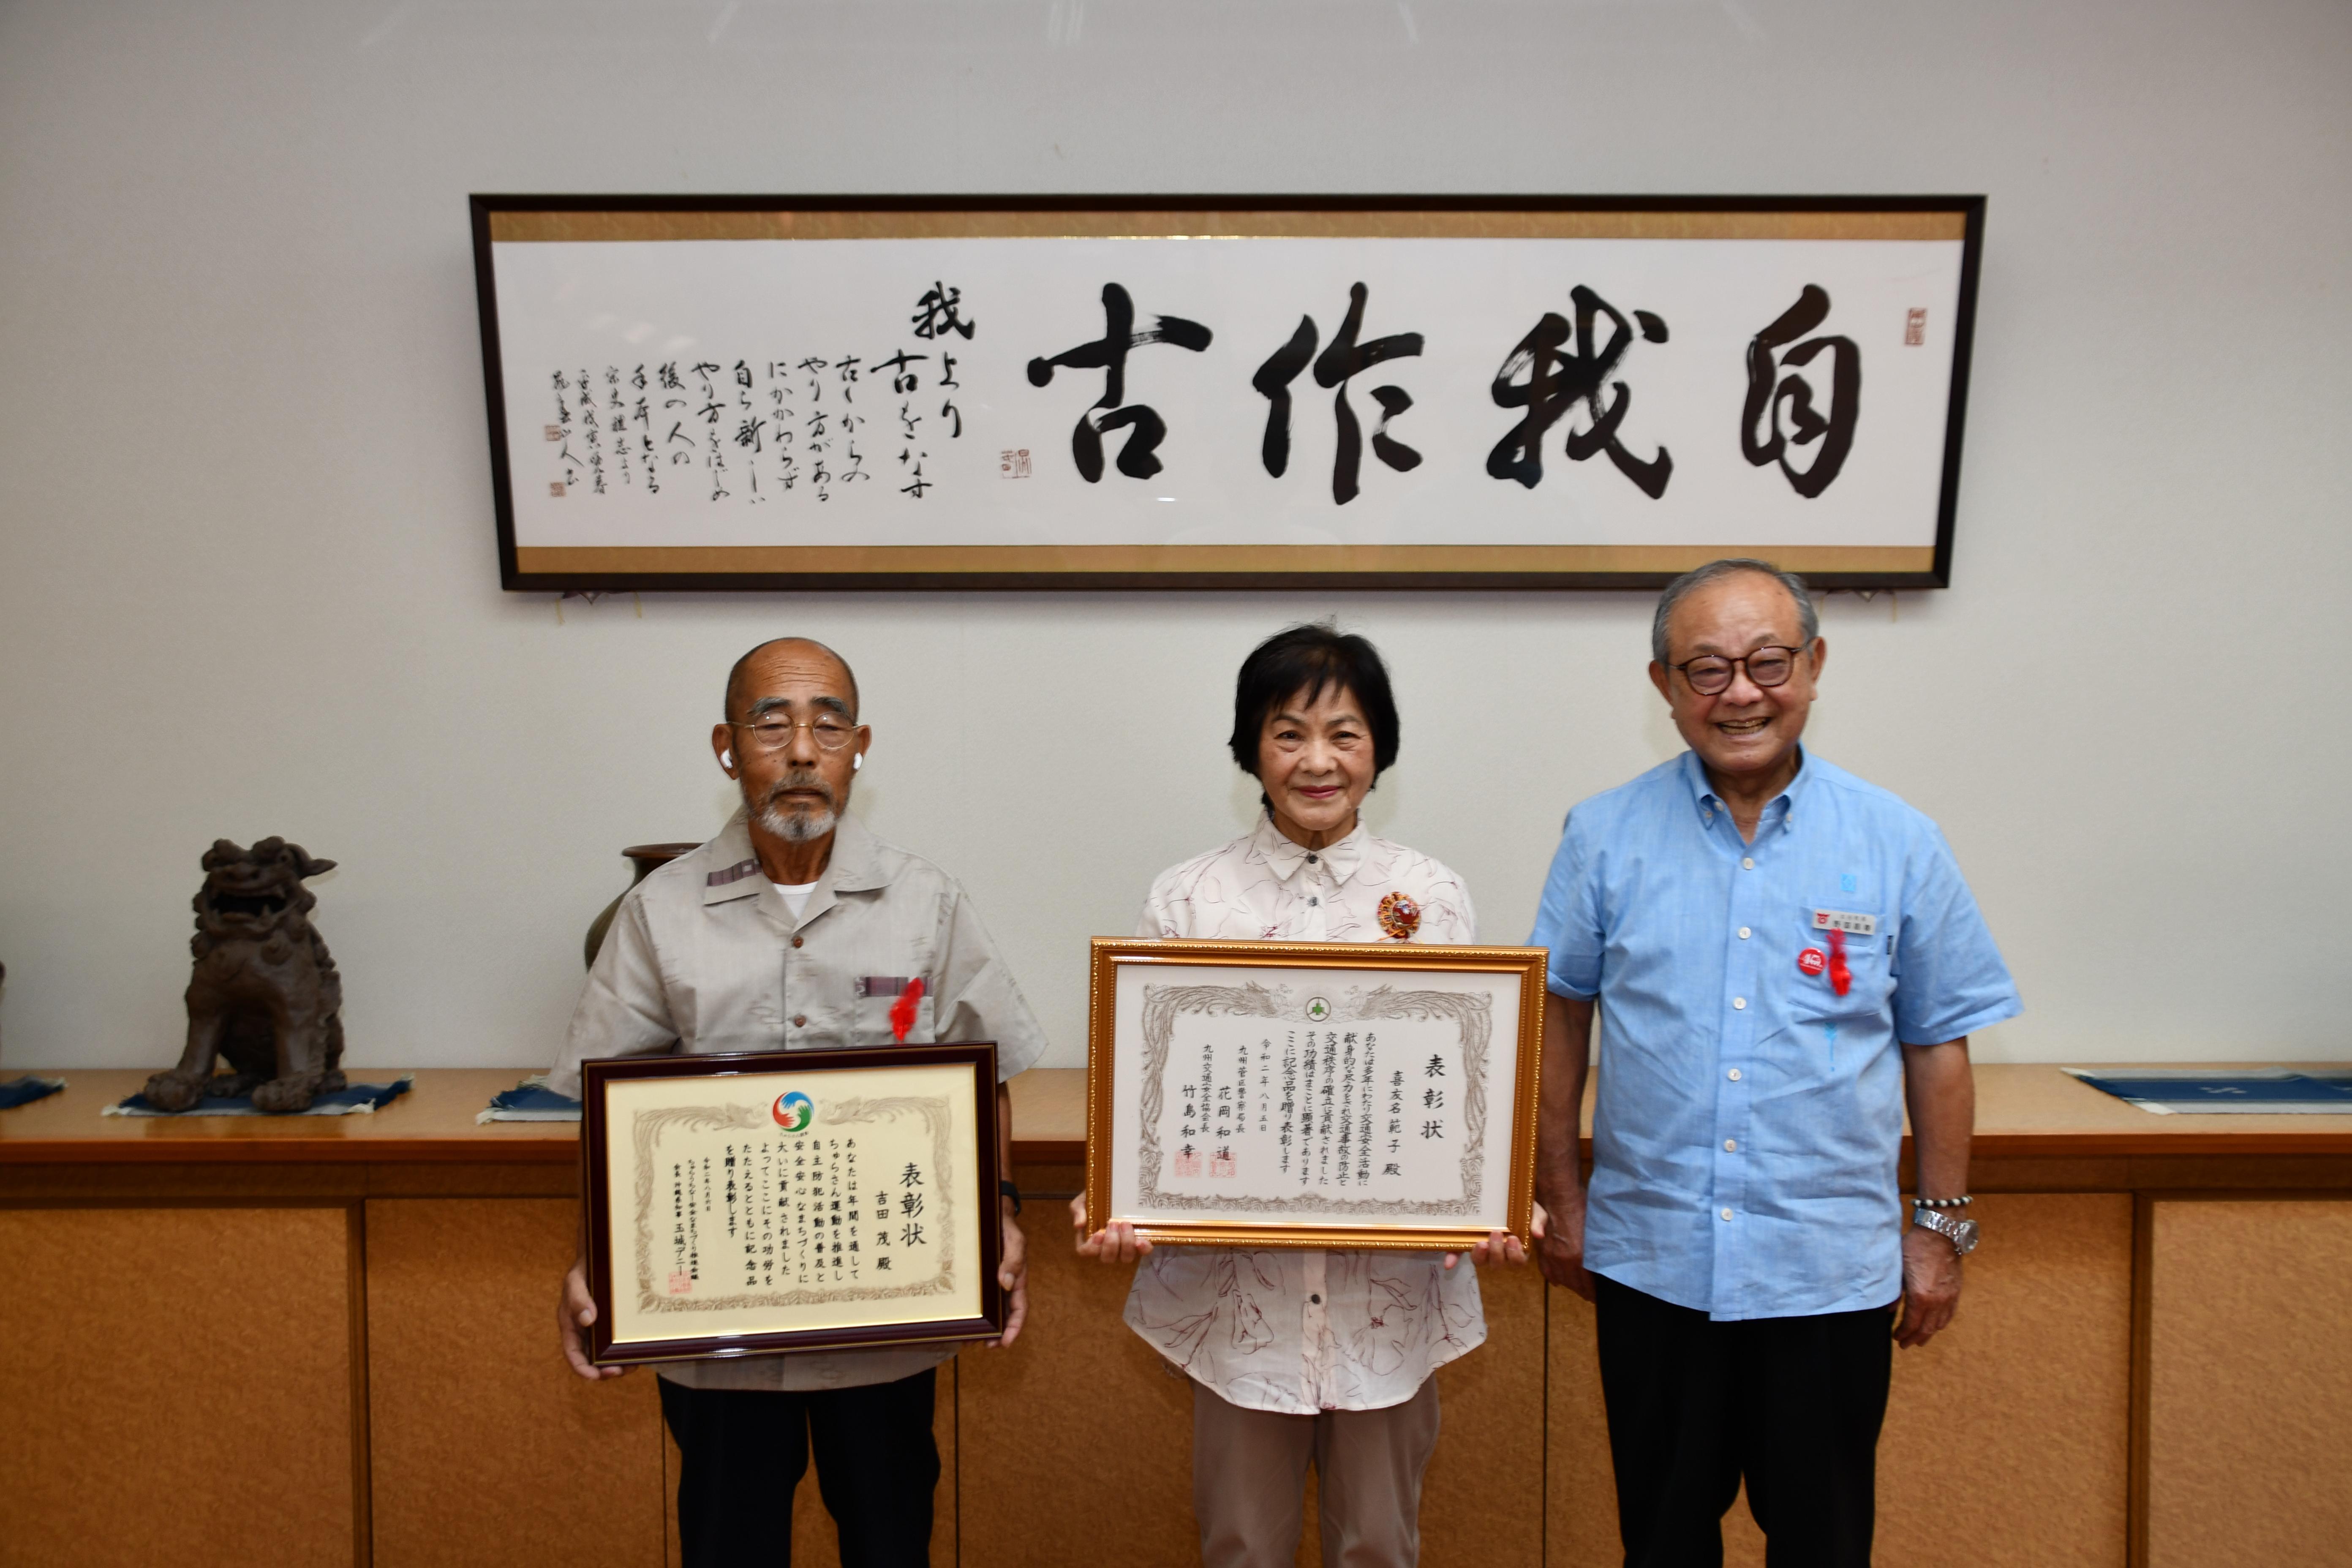 自我作古
我より
古をなす
古くからの
やり方がある
にかかわらず
自ら新しい
やり方をはじめ
後の人の
手本となる
宋史雑志より
表彰状
吉田 茂 殿
あなたは年間を通して
ちゅらさん運動を推進し
自主防犯活動の普及と
安全安心なまちづくりに
大いに貢献されました
よってここにその功労を
たたえるとともに記念品
を贈り表彰します
令和二年八月六日
ちゅらうちなー安全なまちづくり推進会議
会長 沖縄県知事 玉城デニー
表彰状
喜友名 範子 殿
あなたは多年にわたり交通安全活動に
献身的な尽力をされ交通事故の防止と
交通秩序の確立に貢献されました
その功績はまことに顕著であります
ここに記念品を贈り表彰します
令和二年八月五日
九州管区警察局長
花岡和道
九州交通安全協会長
竹島和幸